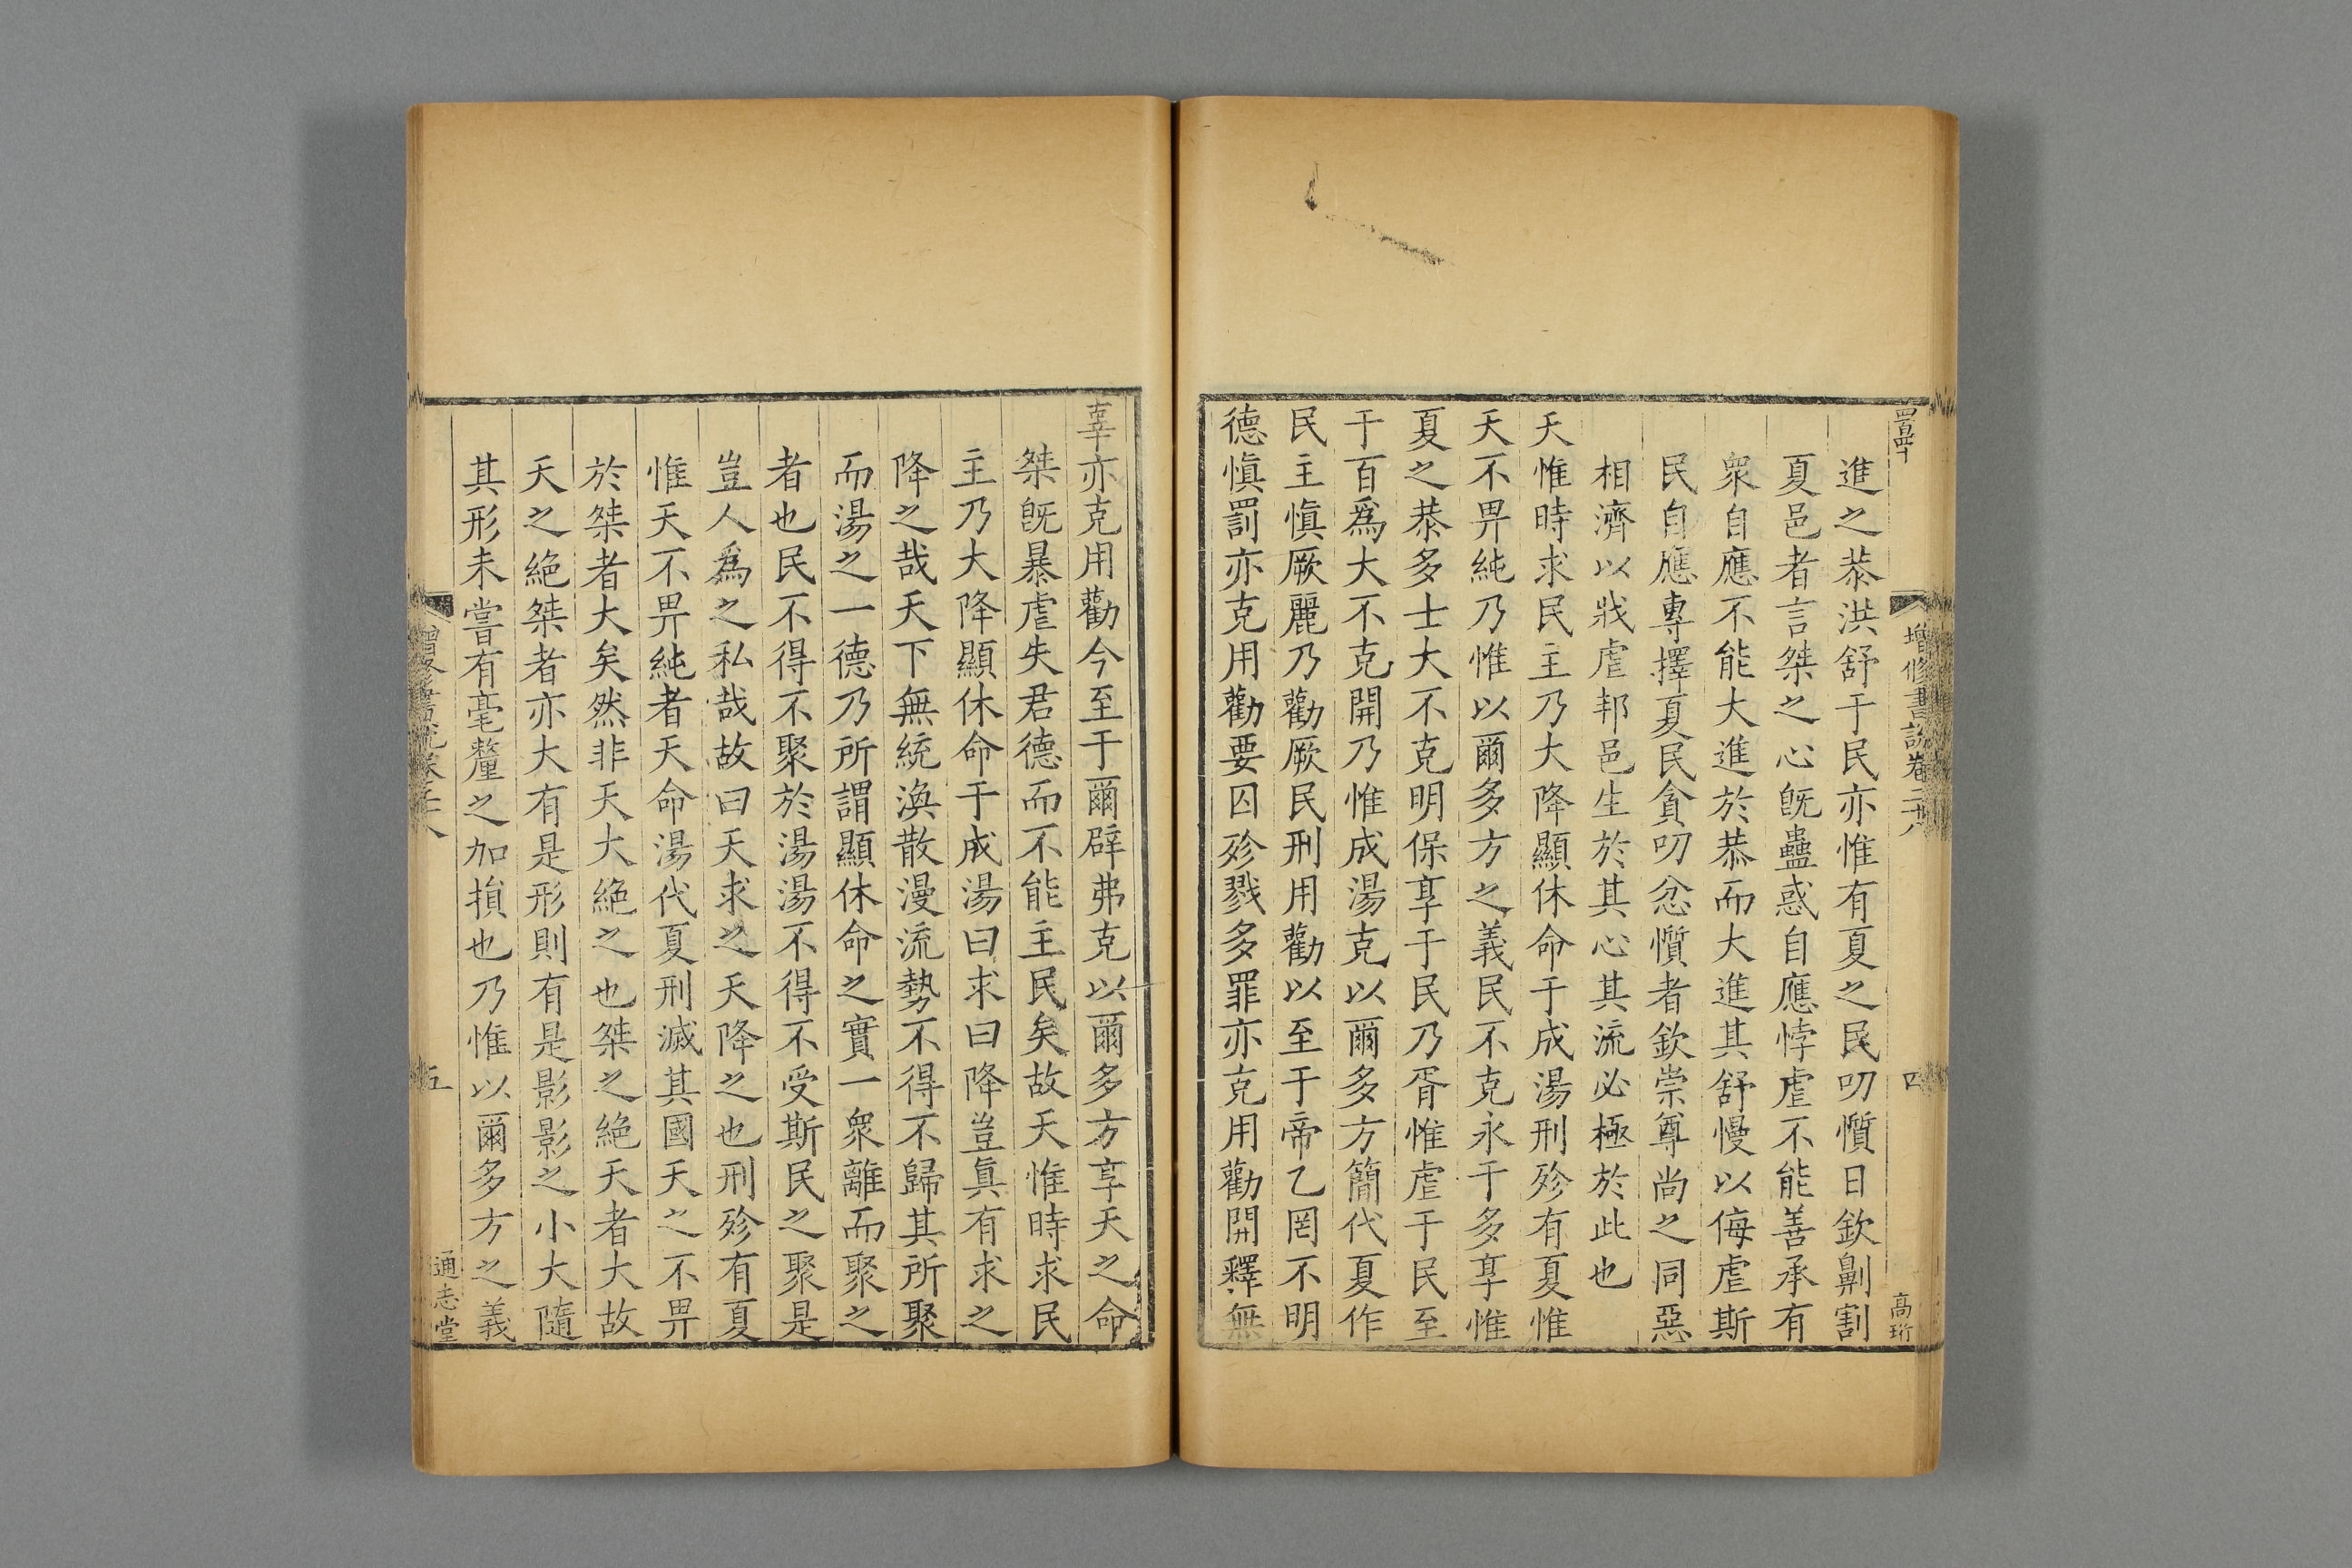 增修書說卷二十八
四
高珩
進之恭洪舒于民亦惟有夏之民叨懫日欽劓割
夏邑者言桀之心旣蠱惑自應悖虐不能善承有
衆自應不能大進於恭而大進其舒慢以侮虐斯
民自應專擇夏民貪叨忿懫者欽崇尊尚之同惡
相濟以戕虐邦邑生於其心其流必極於此也
天惟時求民主乃大降顯休命于成湯刑殄有夏惟
天不畀純乃惟以爾多方之義民不克永于多享惟
夏之恭多士大不克明保享于民乃胥惟虐于民至
于百爲大不克開乃惟成湯克以爾多方簡代夏作
民主愼厥麗乃勸厥民刑用勸以至于帝乙罔不明
德愼罰亦克用勸要囚殄戮多罪亦克用勸開釋無
辜亦克用勸今至于爾辟弗克以爾多方享天之命
桀旣暴虐失君德而不能主民矣故天惟時求民
主乃大降顯休命于成湯曰求曰降豈眞有求之
降之哉天下無統渙散漫流勢不得不歸其所聚
而湯之一德乃所謂顯休命之實一衆離而聚之
者也民不得不聚於湯湯不得不受斯民之聚是
豈人爲之私哉故曰天求之天降之也刑殄有夏
惟天不畀純者天命湯代夏刑滅其國天之不畀
於桀者大矣然非天大絕之也桀之絕天者大故
天之絕桀者亦大有是形則有是影影之小大隨
其形未嘗有毫釐之加損也乃惟以爾多方之義
五
通志堂